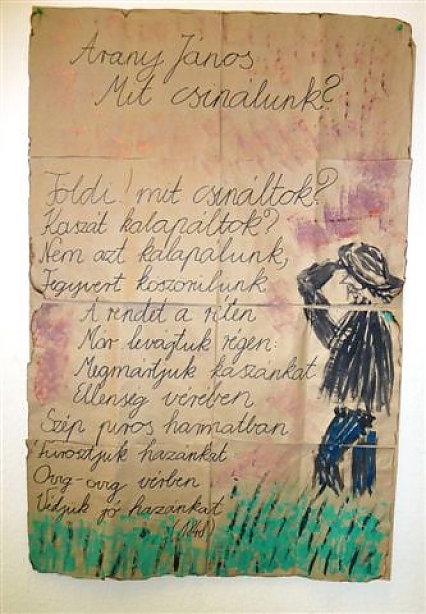 Arany János
Mit csinálunk?
Földi! mit csináltok?
Kaszát kalapáltok?
Nem azt kalapálunk,
Fegyvert köszörülünk
A rendet a réten
Már levágtuk régen:
Megmártjuk kaszánkat
Ellenség vérében
Szép piros harmatban
Fürösztjük hazánkat
vérben
Védjük jó hazánkat
(1848)